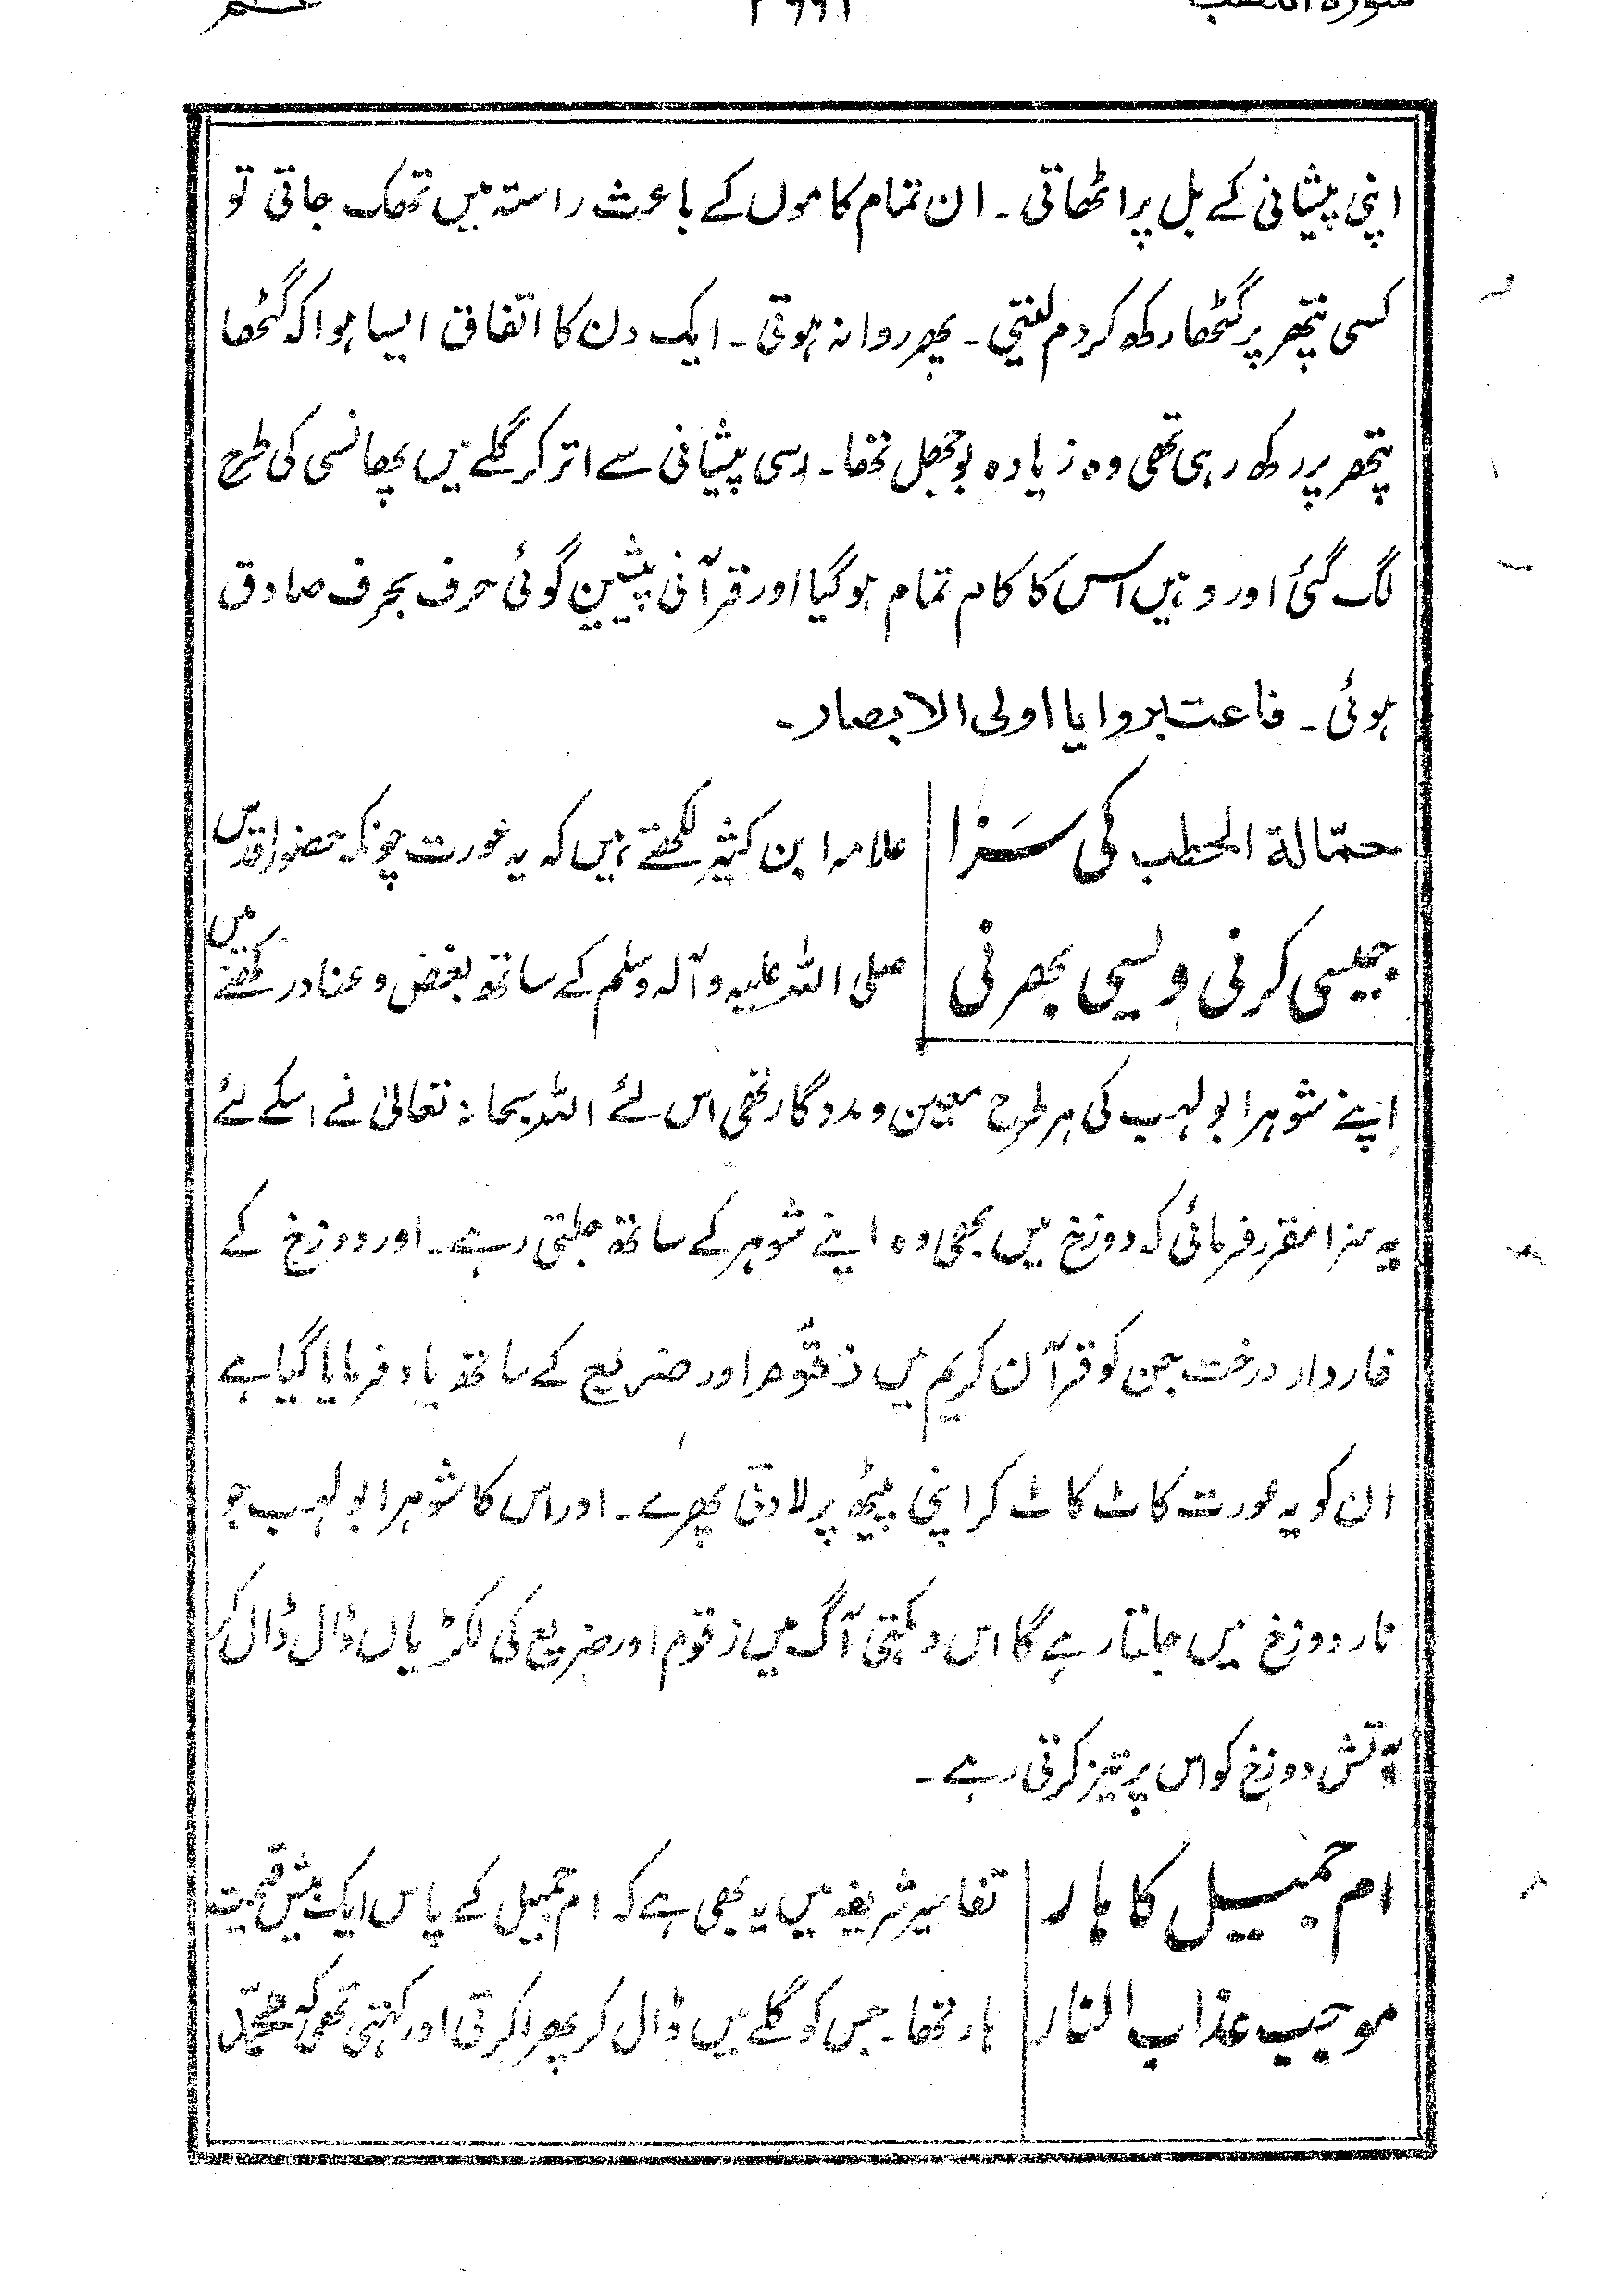 اپنی پیشانی کے بل پر اٹھاتی۔ ان تمام کاموں کے باعث راستہ میں تھک جاتی تو
کسی پتھر پر گٹھا رکھ کر دم لیتی۔ پھر روانہ ہوتی۔ ایک دن کا اتفاق ایسا ہوا کہ گٹھا
پتھر پر رکھ رہی تھی وہ زیادہ بوجھل تھا۔ رسی پیشانی سے اتر کر گلے میں پھانسی کی طرح
لگ گئی اور وہیں اس کا کام تمام ہو گیا اور قرآنی پیشین گوئی حرف بحرف صادق
ہوئی۔ فاعتبروا یا اولی الابصار۔
حمّالۃ الحطب کی سَزا
جیسی کرنی ویسی بھرنی
علامہ ابن کثیر لکھتے ہیں کہ یہ عورت چونکہ حضور اقدس
صلی اللہ علیہ وآلہ وسلم کے ساتھ بغض و عناد رکھنے میں
اپنے شوہر ابو لہب کی ہر طرح معین و مددگار تھی اس لئے اللہ سبحانہ تعالیٰ نے اسکے لئے
یہ سزا مقرر فرمائی کہ دوزخ میں بھی وہ اپنے شوہر کے ساتھ جلتی رہے۔ اور دوزخ کے
خاردار درخت جن کو قرآن کریم میں زقّوم اور ضریع کے ساتھ یاد فرمایا گیا ہے
ان کو یہ عورت کاٹ کاٹ کر اپنی پیٹھ پر لادتی پھرے۔ اور اس کا شوہر ابو لہب جو
نار دوزخ میں جلتا رہے گا اس دہکتی آگ میں زقوم اور ضریع کی لکڑیاں ڈال ڈال کر
آتش دوزخ کو اس پر تیز کرتی رہے۔
ام جمیل کا ہار
موجب عذاب النار
تفاسیر شریفہ میں یہ بھی ہے کہ ام جمیل کے پاس ایک بیش قیمت
ہار تھا۔ جس کو گلے میں ڈال کر پھرا کرتی اور کہتی تھی کہ محمّد